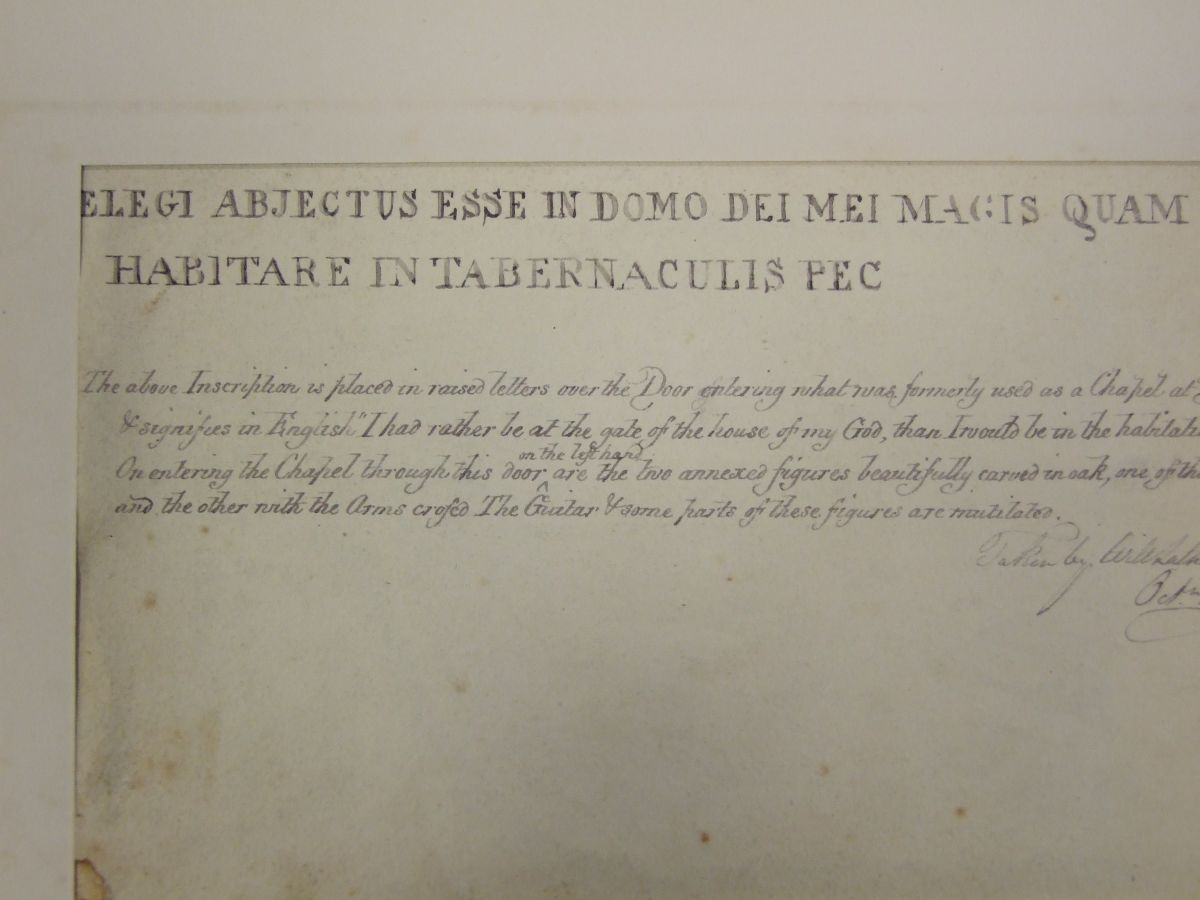 ELEGI ABJECTUS ESSE IN DOMO DEI MEI MAGIS QUAM
HABITARE IN TABERNACULIS PEC
The above Inscription is placed in raised letters over the Door entering what was formerly used as a Chapel at
& signifies in English "I had rather be at the gate of the house of my God, than I would be in the
on the left hand
On entering the Chapel through this door ^ are the two annexed figures beautifully carved in oak, one of
and the other with the Arms crosed The Guitar & some parts of these figures are mutilated.
Taken by